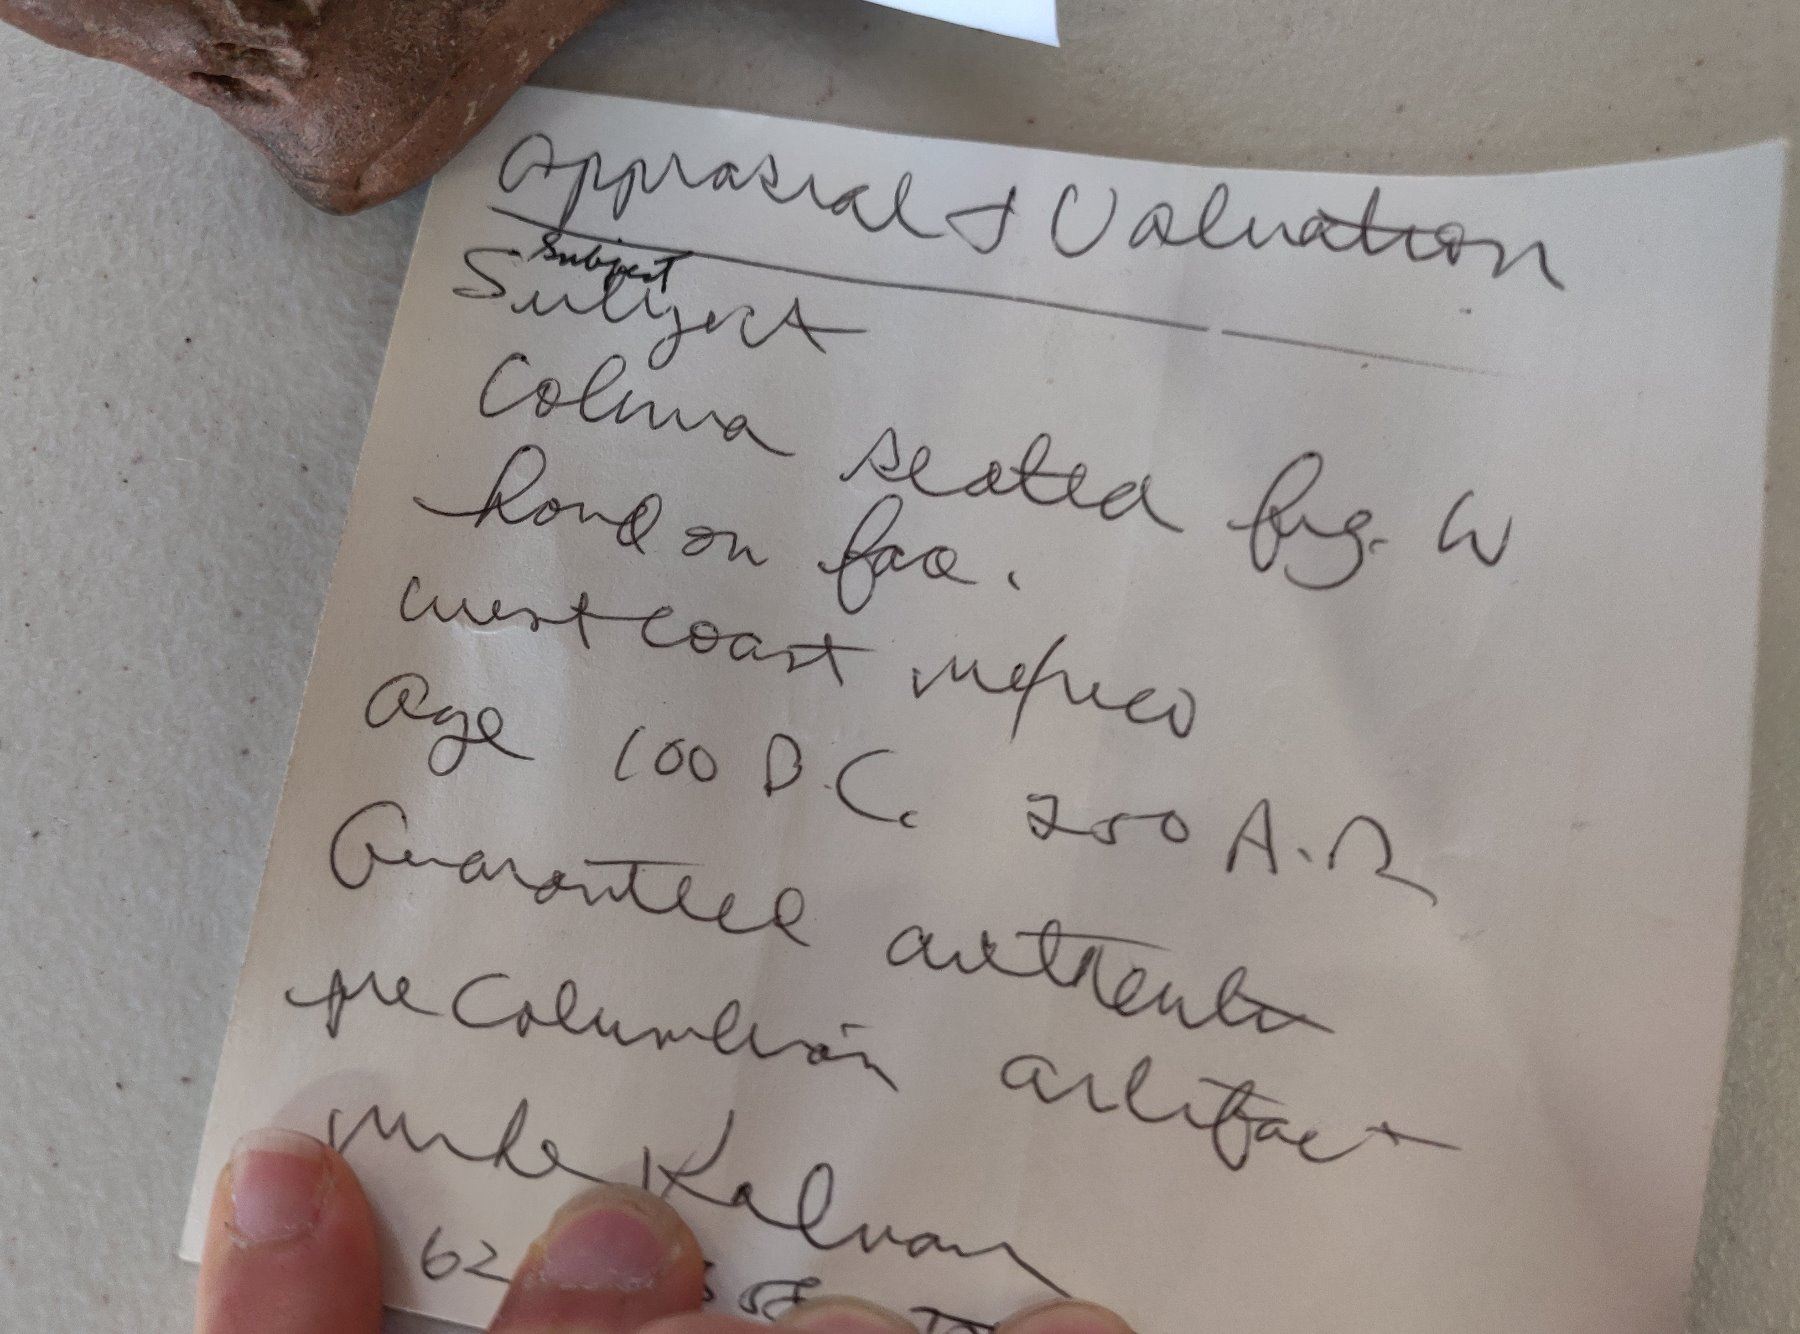 Appraisal & Valuation
Subject
Subject
Colima seated fig. W
hand on face.
west coast mexico
Age 100 B.C. 250 A.D
Guaranteed authentic
pre Columbian artifact
Mike
62